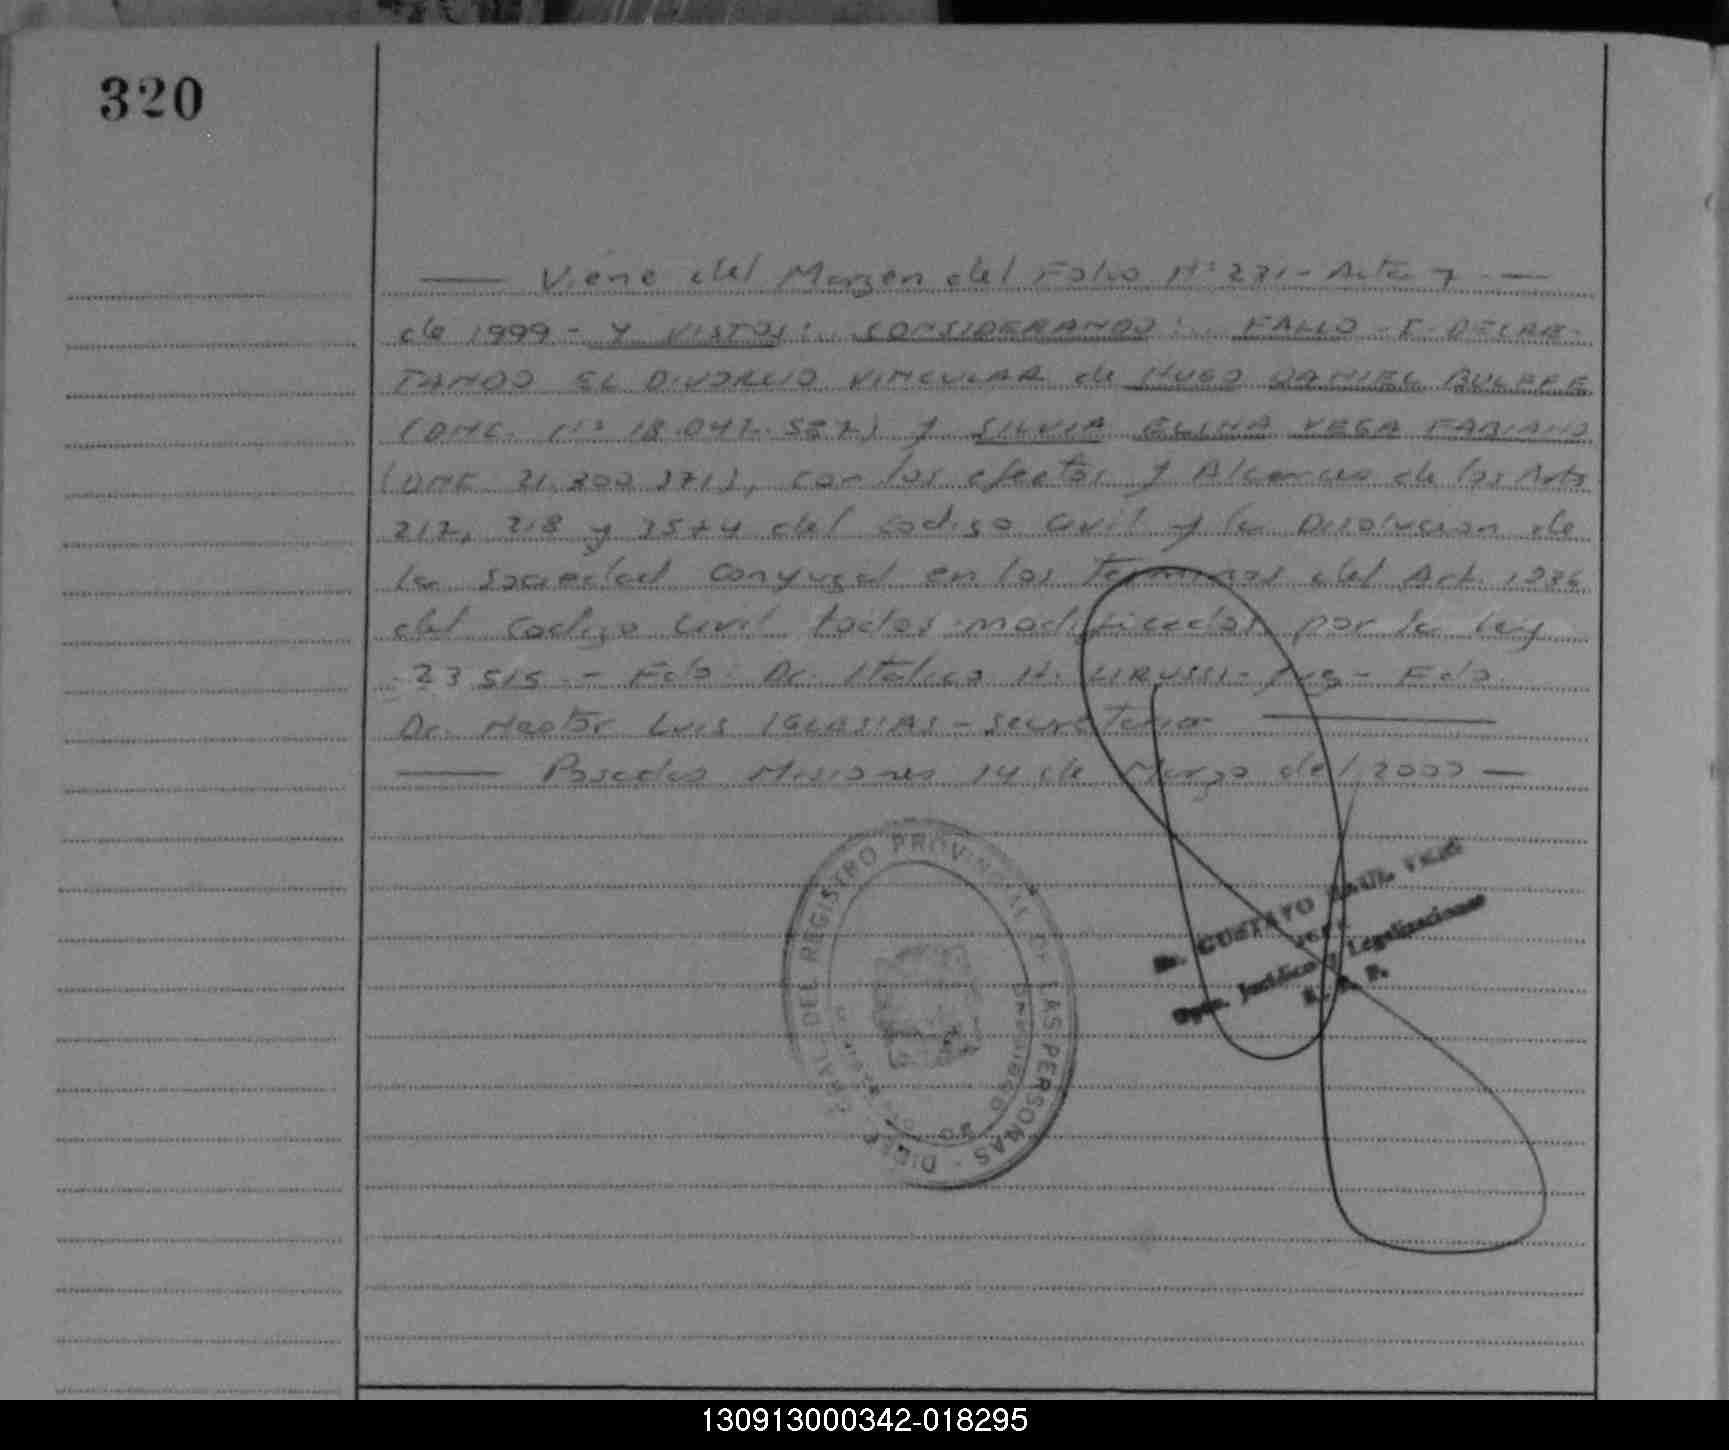 320
Viene del Margen del Folio Nº 231 - Acta 7
de 1999 - Y VISTOS: CONSIDERANDO: FALLO - I - DECRE-
TANDO EL DIVORCIO VINCULAR de HUGO DANIEL BULFFE
(DNI. Nº 18.042.587) y SILVIA ELINA VEGA FABIANO
(DNI 21.300.371), con los efectos y Alcances de los Arts
217, 218 y 3574 del Codigo Civil y la Disolucion de
la Sociedad Conyugal en los Terminos del Art. 1306
del Codigo Civil todos modificados por la ley
23515 - Fdo: Dr. Italico H. - Juez - Fdo.
Dr. Hector Luis IGLESIAS - Secretario
Posadas Misiones 14 de Marzo del 2000
DEL REGISTRO PROVINCIAL DE LAS PERSONAS - DIREC
Dr. GUSTAVO RAUL
JEFE
Dpto. Jurídico y Legalizaciones
R. P. P.
130913000342-018295